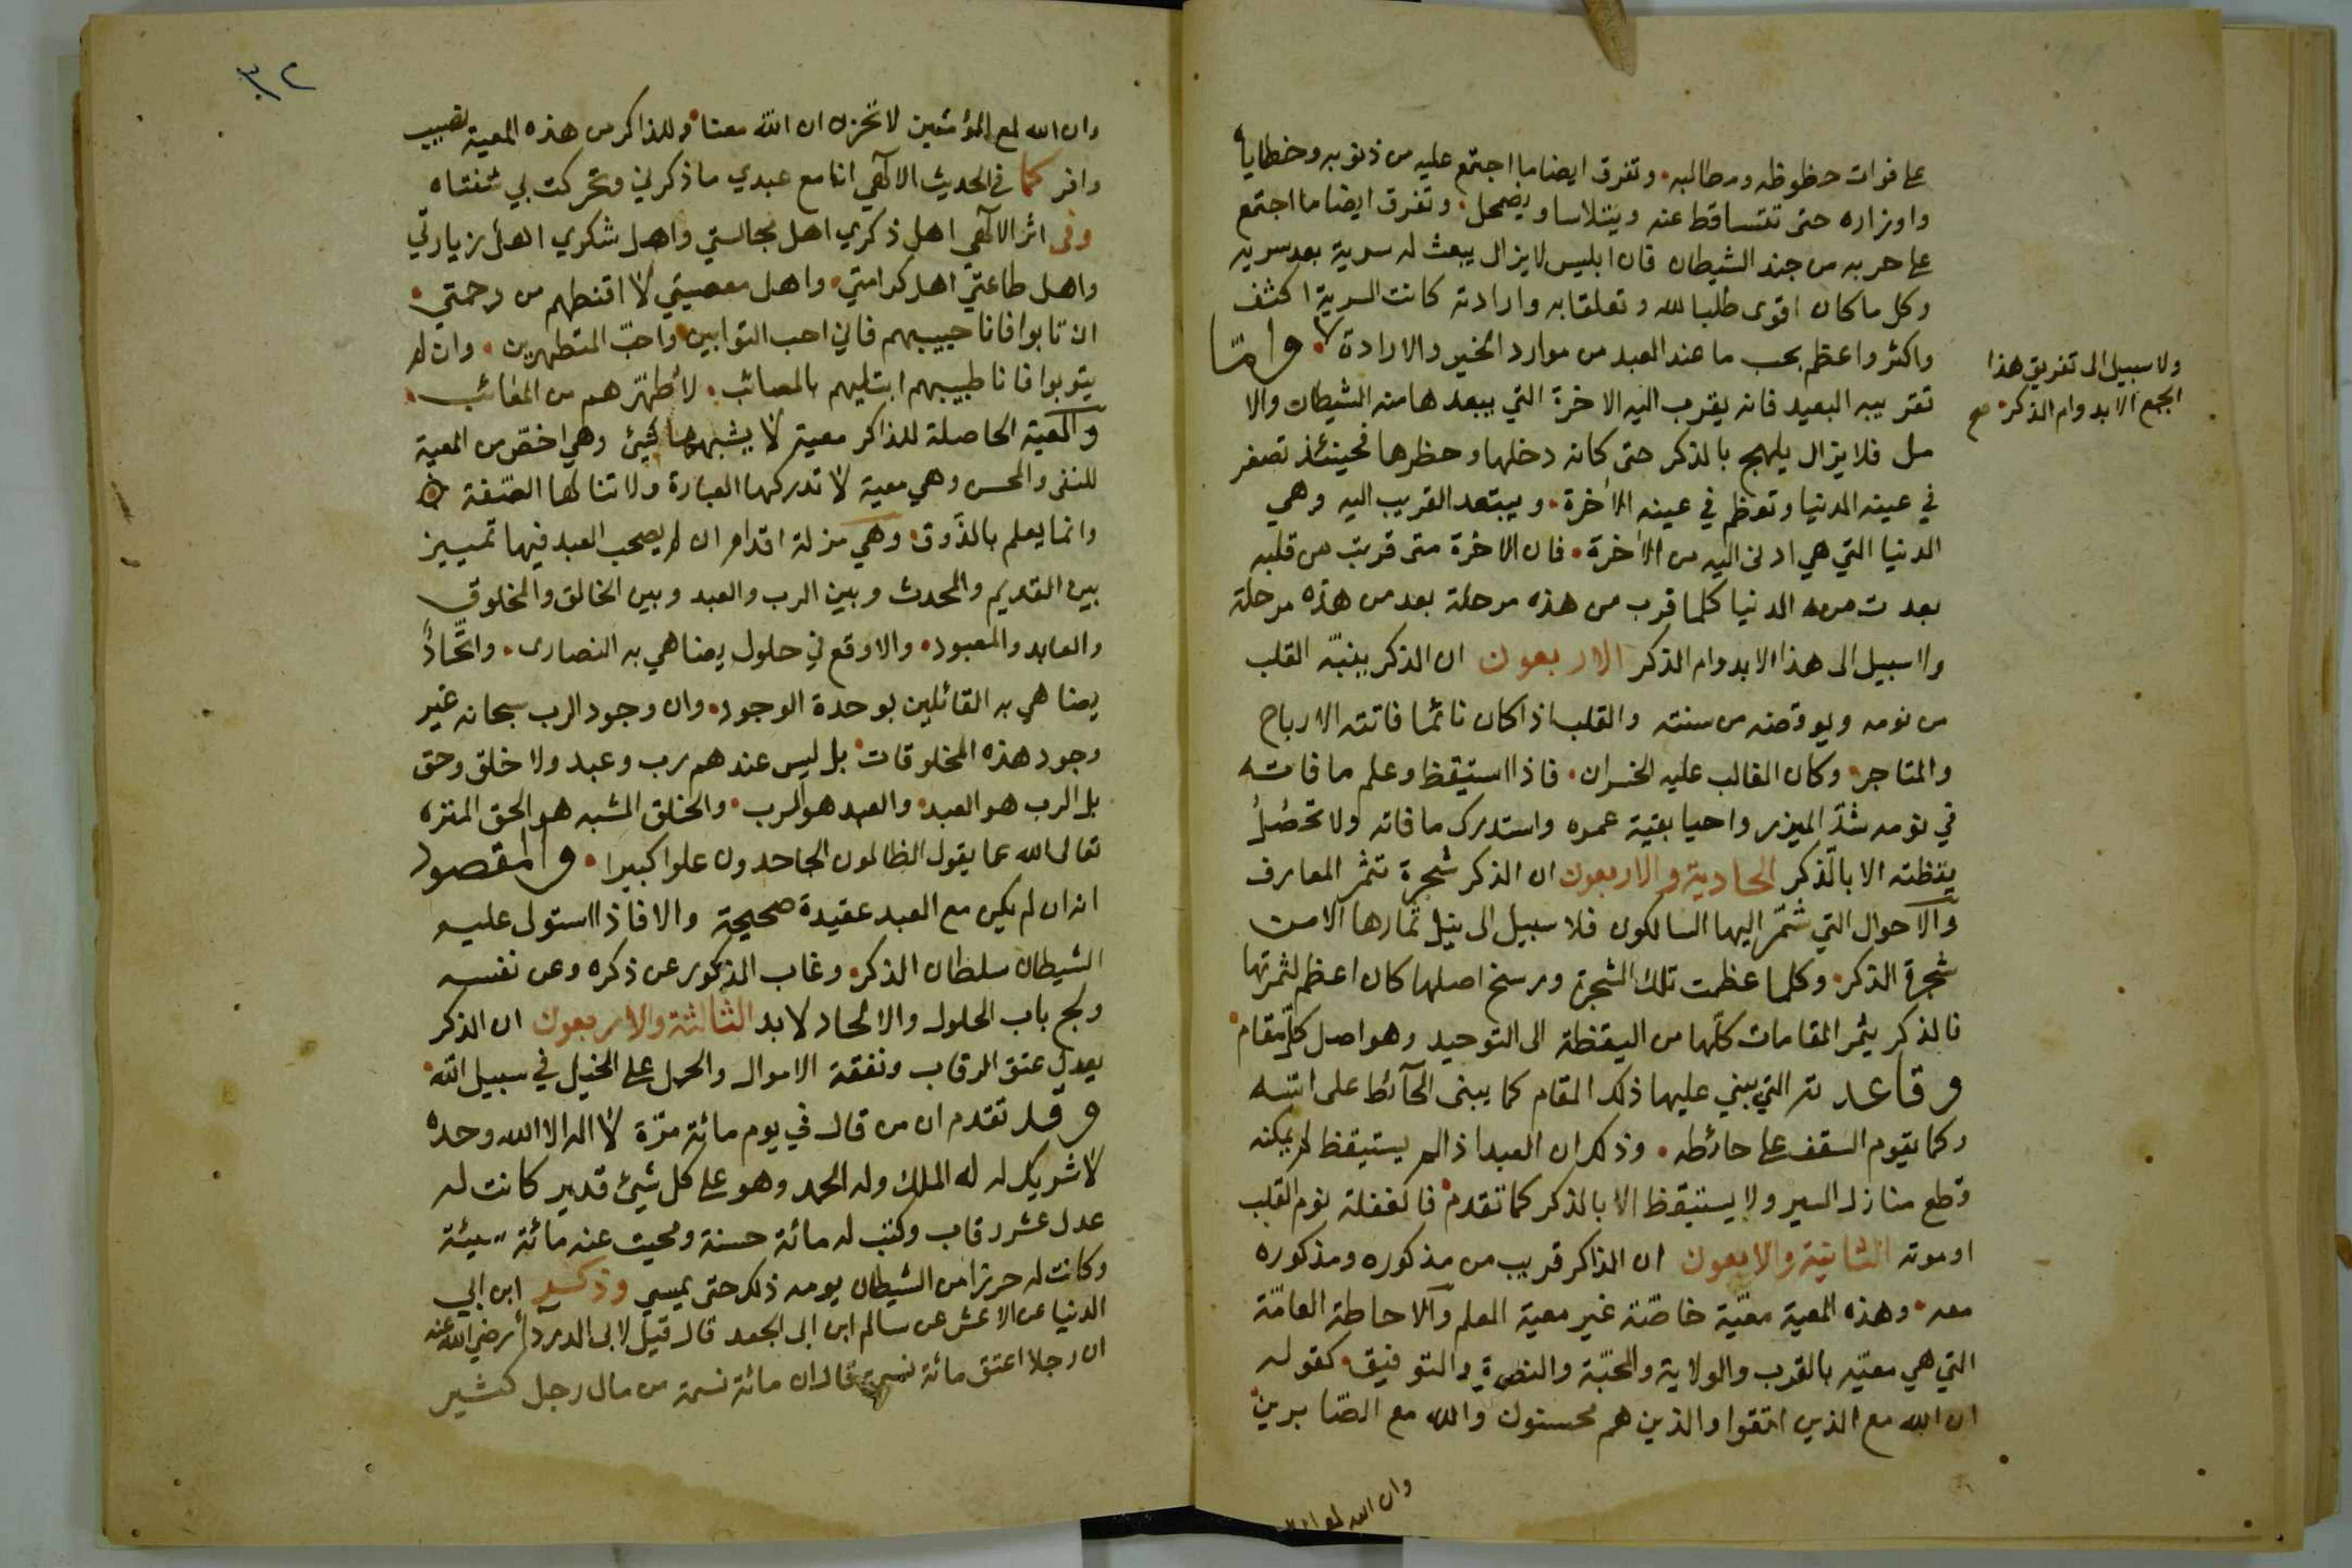 على فوات حظوظه ومطالبه. وتفرق ايضا ما اجتمع عليه من ذنوبه وخطاياه
واوزاره حتى تتساقط عنه ويتلاسا ويضمحل. وتفرق ايضا ما اجتمع
على حربه من جند الشيطان فان ابليس لا يزال يبعث له سرية بعد سريه
وكل ما كان اقوى طلبا لله وتعلقا به وارادته كانت السرية اكثف
واكثر واعظم بحب ما عند العبد من موارد الخير والارادة. واما
ولا سبيل الى تفريق هذا
الجمع الا بدوام الذكر. صح
تقريبه البعيد فانه يقرب اليه الاخرة التي يبعدها منه الشيطان والا
مل فلا يزال يلهج بالذكر حتى كانه دخلها وحظرها فحينئذ تصغر
في عينه الدنيا وتعظم في عينه الاخرة. ويبتعد القريب اليه وهي
الدنيا التي هي ادنى اليه من الاخرة. فان الاخرة متى قربت من قلبه
بعدت منه الدنيا كلما قرب من هذه مرحلة بعد من هذه مرحلة
ولا سبيل الى هذا الا بدوام الذكر الاربعون ان الذكر ينبّه القلب
من نومه ويوقضه من سنته والقلب اذا كان نائما فاتته الارباح
والمتاجر. وكان الغالب عليه الخسران. فاذا استيقظ وعلم ما فاته
في نومه شدّ الميزر واحيا بقية عمره واستدرك ما فاته ولا تحصُلُ
يقظته الا بالذكر الحادية والاربعون ان الذكر شجرة تثمر المعارف
والاحوال التي شمّر اليها السالكون فلا سبيل الى نيل ثمارها الا من
شجرة الذكر. وكلما عظمت تلك الشجرة ورسخ اصلها كان اعظم لثمرتها
فالذكر يثمر المقامات كلّها من اليقظة الى التوحيد وهو اصل كلّ مقام
وقاعدته التي يبني عليها ذلك المقام كما يبنى الحآئط على اسّه
وكما يقوم السقف على حائطه. وذلك ان العبد اذا لم يستيقظ لم يمكنه
قطع منازل السير ولا يستيقظ الا بالذكر كما تقدم. فالغفلة نوم القلب
او موته الثانية والاربعون ان الذاكر قريب من مذكوره ومذكوره
معه. وهذه المعية معيّة خاصّة غير معية العلم والاحاطة العامّة
التي هي معيّه بالقرب والولاية والمحبّة والنصرة والتوفيق. كقوله
ان الله مع الذين اتقوا والذين هم محسنون والله مع الصّابرين
وان الله لمع
٣٢
وان الله لمع المؤمنين لا تحزن ان الله معنا. وللذاكر من هذه المعية نصيب
وافر كما في الحديث الالٓهي انا مع عبدي ما ذكرني وتحركت بي شفتاه
وفى اثر الالٓهي اهل ذكري اهل مجالستي واهل شكري اهل زيارتي
واهل طاعتي اهل كرامتي. واهل معصيتي لا اقنطهم من رحمتي.
ان تابوا فانا حبيبهم فاني احب التوابين واحبّ المتطهرين. وان لم
يتوبوا فانا طبيبهم ابتليهم بالمصائب. لأطهّرهم من المعائب.
والمعية الحاصلة للذاكر معية لا يشبهها شيئ وهي اخصّ من المعية
للمتقى والمحسن وهي معية لا تدركها العبارة ولا تنالها الصّفة
وانما يعلم بالذّوق. وهي مزلة اقدام ان لم يصحب العبد فيها تمييز
بين القديم والمحدث وبين الرب والعبد وبين الخالق والمخلوق
والعابد والمعبود. والا وقع في حلول يضاهي به النصارى. واتّحادٌ
يضاهي به القائلين بوحدة الوجود. وان وجود الرب سبحانه غير
وجود هذه المخلوقات. بل ليس عندهم رب وعبد ولا خلق وحق
بل الرب هو العبد. والعبد هو الرب. والخلق المشبه هو الحق المنزه
تعالى الله عما يقول الظالمون الجاحدون علوا كبيرا. والمقصود
انه ان لم يكن مع العبد عقيدة صحيحة والا فاذا استولى عليه
الشيطان سلطان الذكر. وغاب المذكور عن ذكره وعن نفسه
ولج باب الحلول والالحاد لا بد الثالثة والاربعون ان الذكر
يعدل عتق الرقاب ونفقة الاموال والحمل على الخيل في سبيل الله.
وقد تقدم ان من قال في يوم مائة مرّة لا اله الا الله وحده
لا شريك له له الملك وله الحمد وهو على كل شيئ قدير كانت له
عدل عشر رقاب وكتب له مائة حسنة ومحيت عنه مائة سيئة
وكانت له حرزا من الشيطان يومه ذلك حتى يمسي وذكر ابن ابي
الدنيا عن الاعمش عن سالم ابن ابى الجعد قال قيل لابى الدردآء رضي الله عنه
ان رجلا اعتق مائة نسمة قال ان مائة نسمة من مال رجل كثير